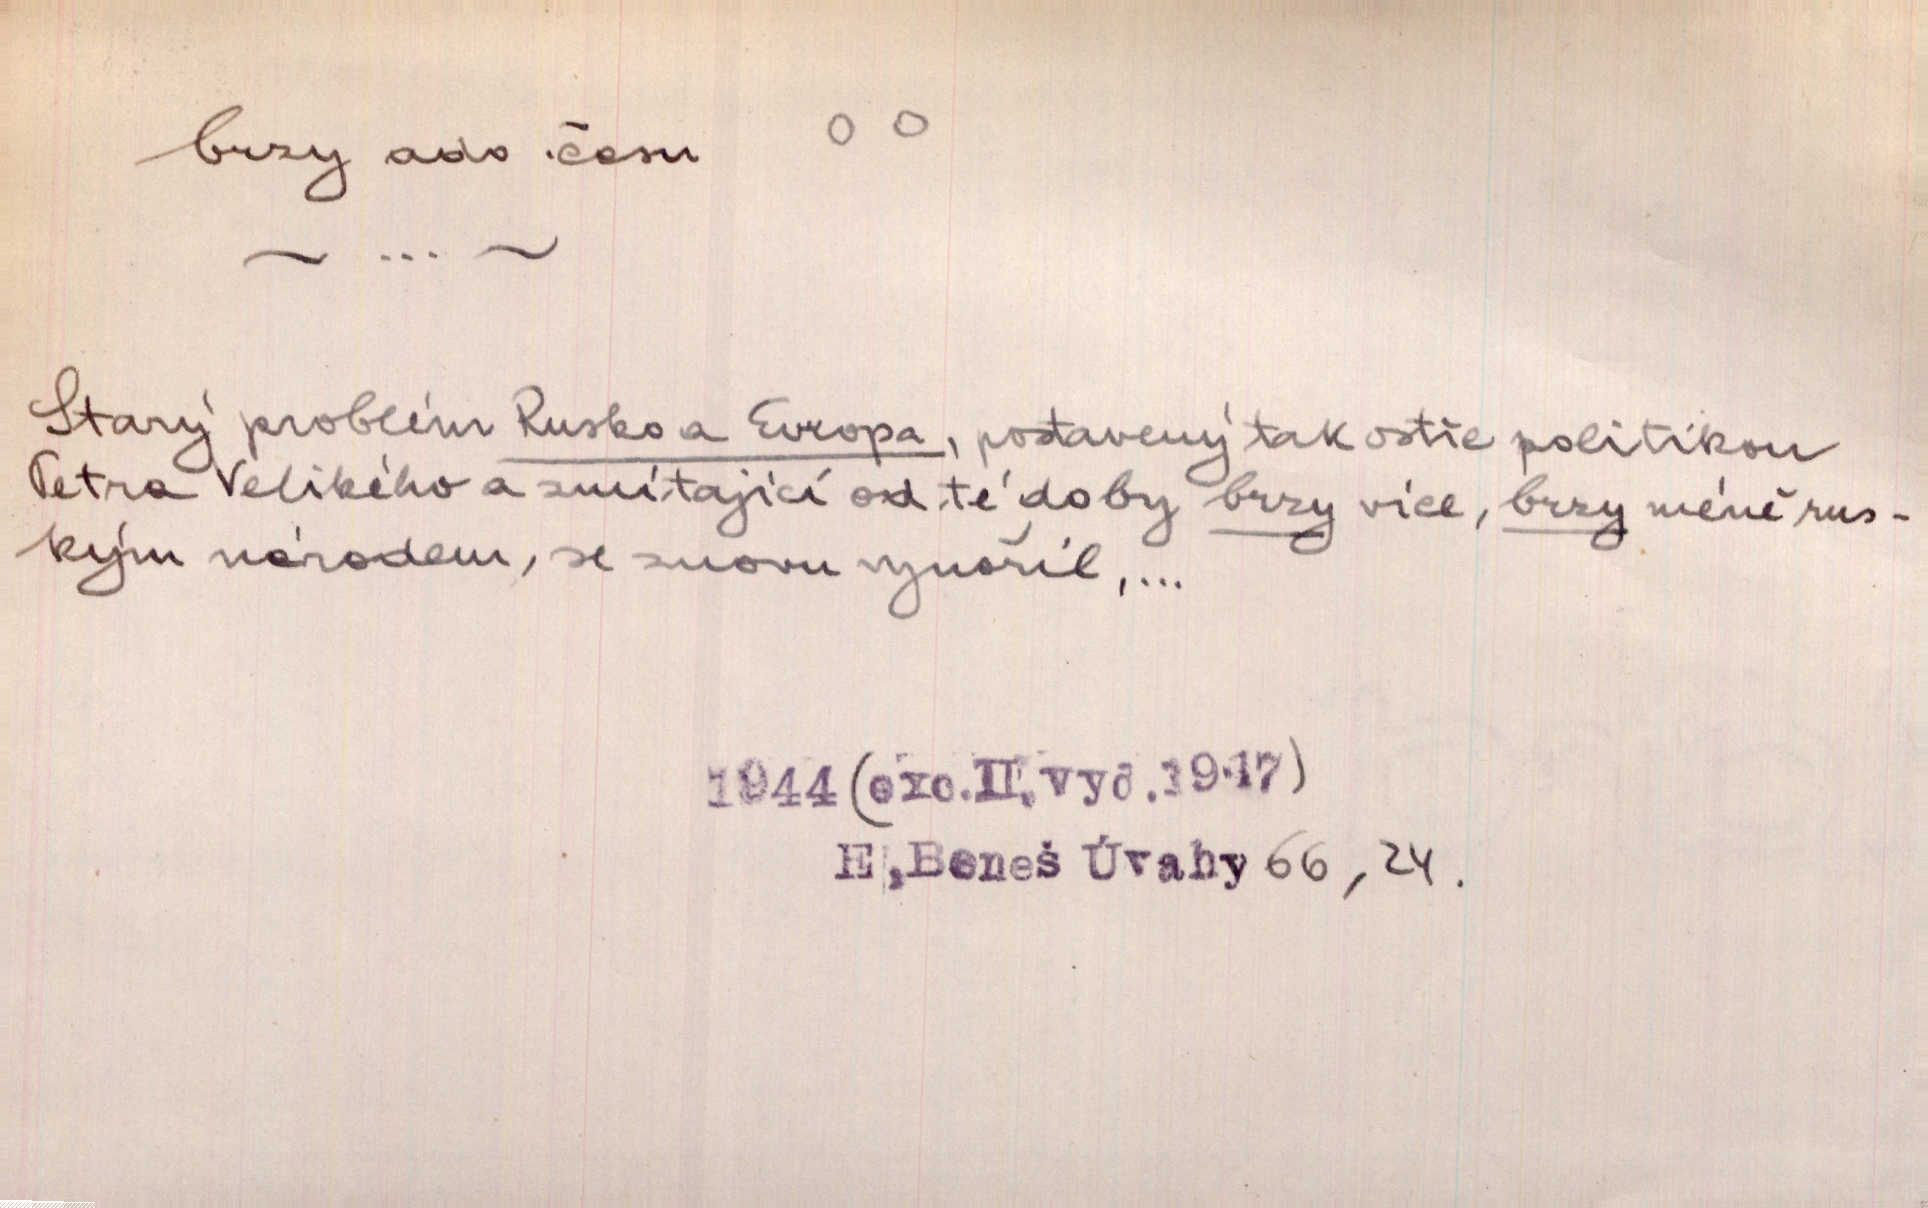 brzy adv. času o o
~ ... ~
Starý problém Rusko a Evropa, postavený tak ostře politikou
Petra Velikého a zmítající od té doby brzy více, brzy méně rus-
kým národem, se znovu vynořil,...
1944 (exc. II. vyd. 1947)
E. Beneš Úvahy 66, 24.